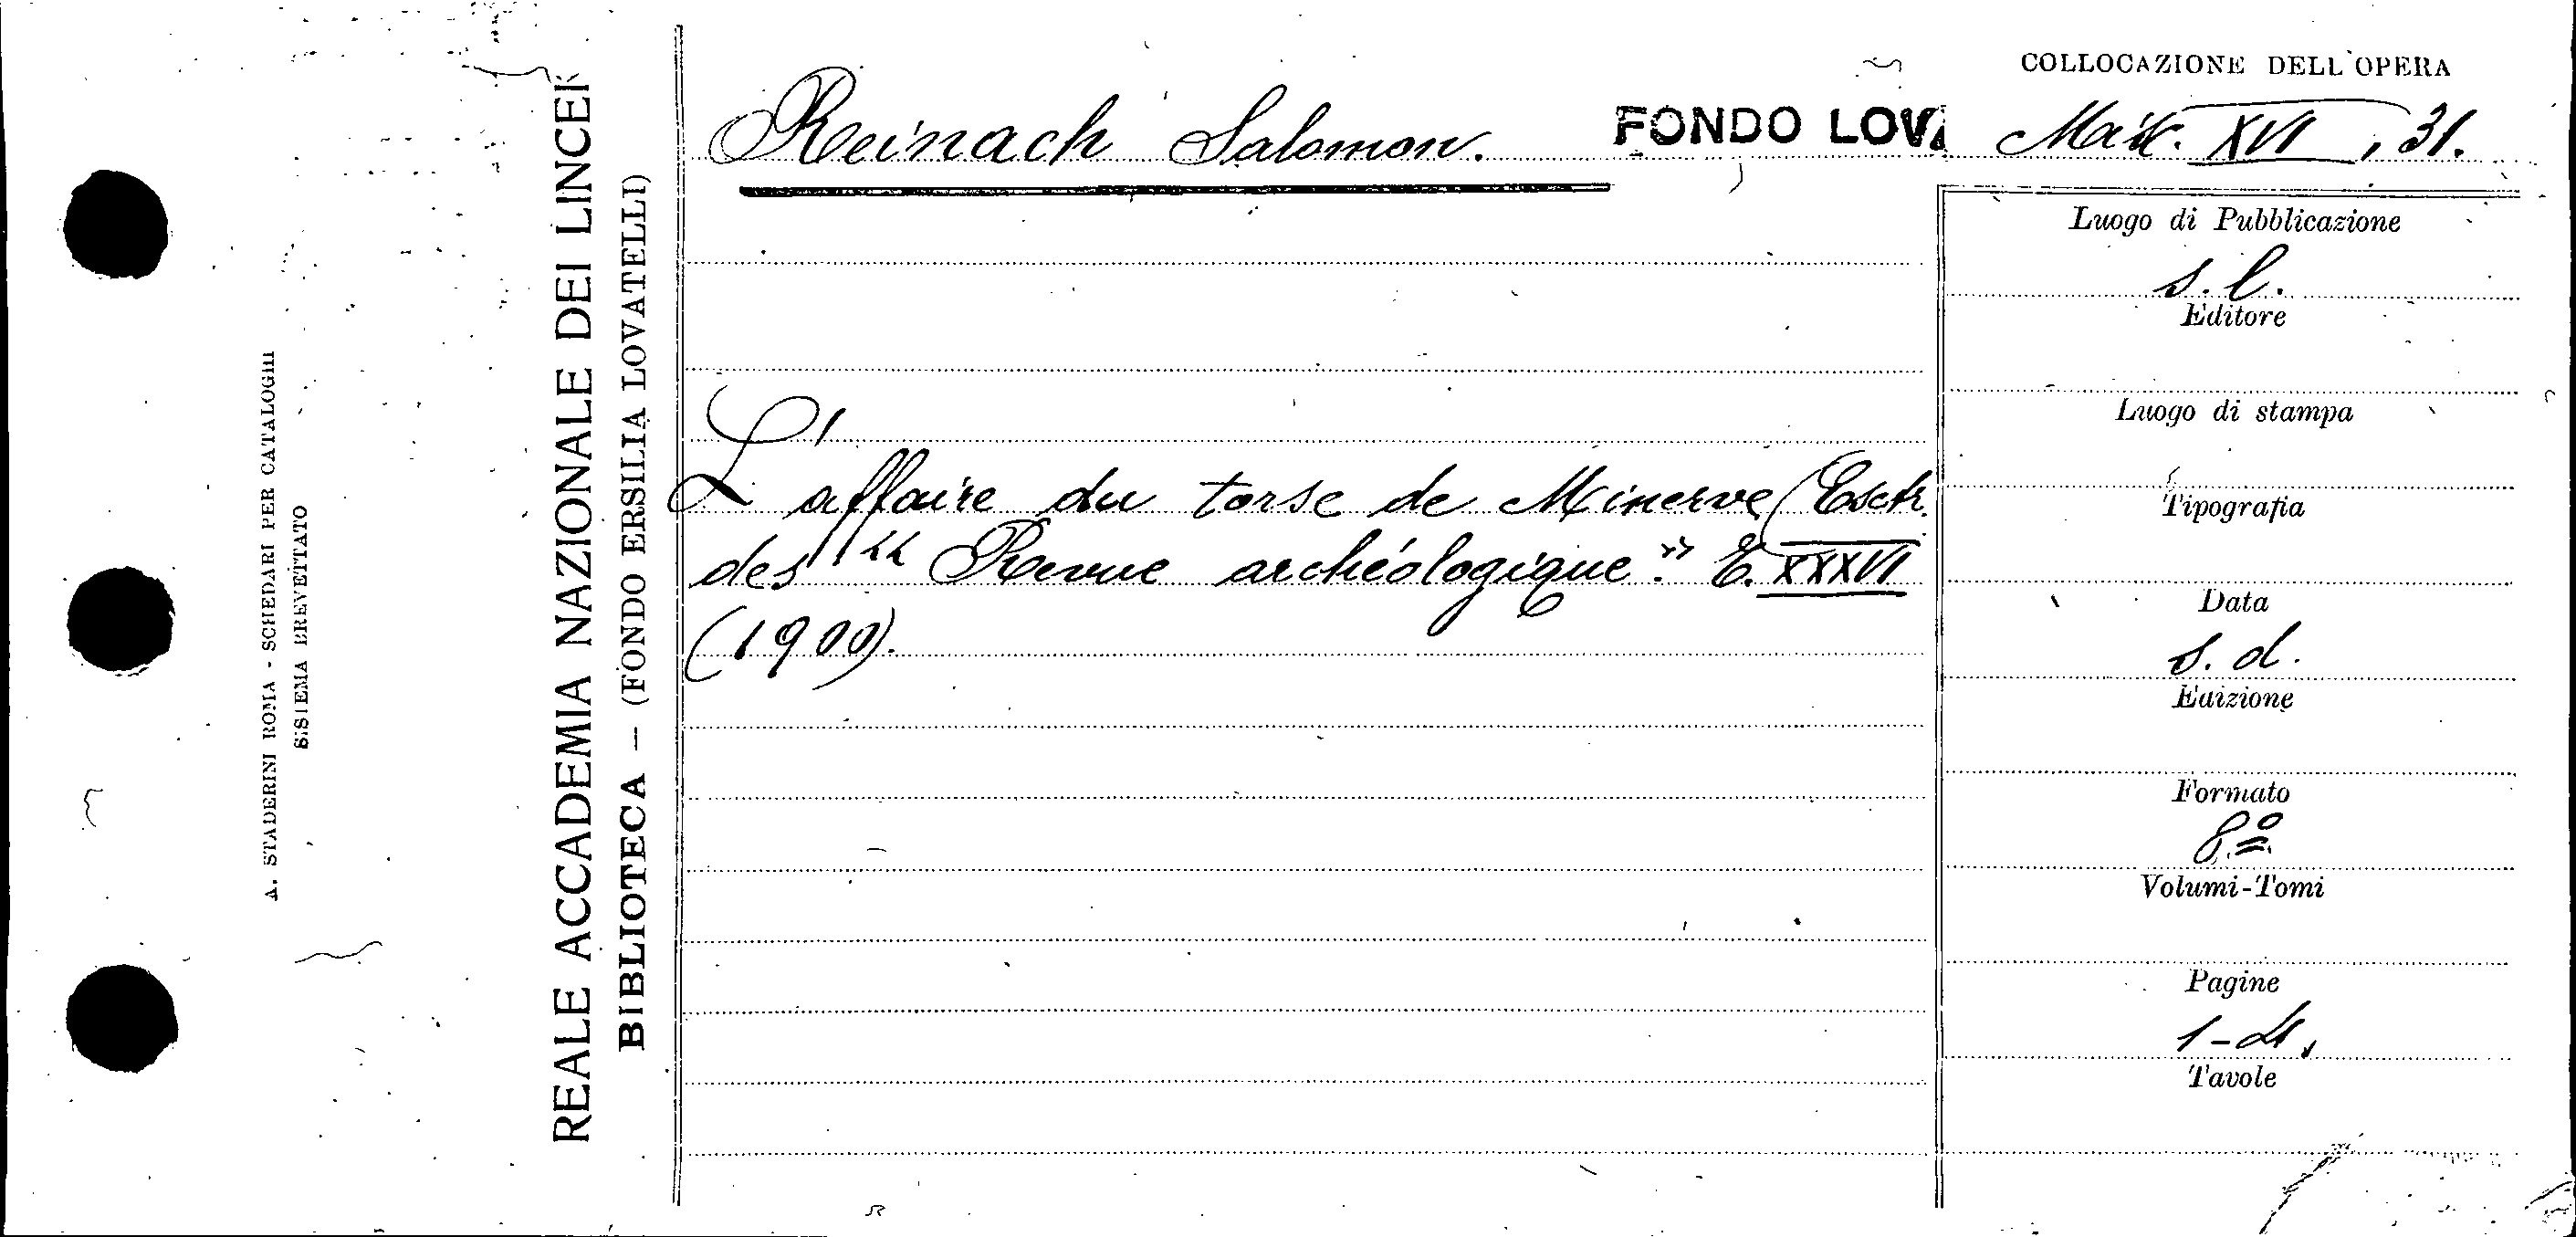 A. STADERINI ROMA - SCHEDARI PER CATALOGHI
SISTEMA BREVETTATO
REALE ACCADEMIA NAZIONALE DEI LINCEI
BIBLIOTECA — (FONDO ERSILIA LOVATELLI)
Reinach Salomon.
FONDO LOVA
COLLOCAZIONE DELL'OPERA
XVI, 31.
L'affaire du torse de Minerve (Estr.
des "Revue archéologique." T. XXXVI
(1900).
Luogo di Pubblicazione
s. l.
Editore
Luogo di stampa
Tipografia
Data
s. d.
Edizione
Formato
8.º
Volumi-Tomi
Pagine
Tavole